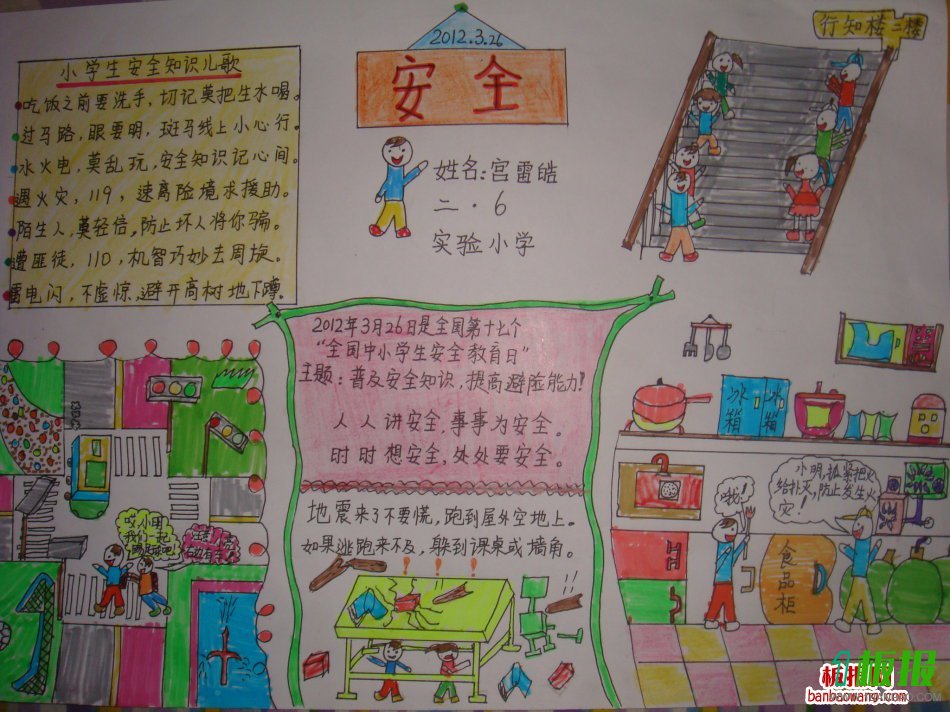 2012.3.26
安全
行知楼二楼
小学生安全知识儿歌
吃饭之前要洗手,切记莫把生水喝。
过马路,眼要明,斑马线上小心行。
水火电,莫乱玩,安全知识记心间。
遇火灾,119,速离险境求援助。
陌生人,莫轻信,防止坏人将你骗。
遭匪徒,110,机智巧妙去周旋。
雷电闪,不虚惊,避开高树地下蹲。
姓名:宫雷皓
二·6
实验小学
2012年3月26日是全国第十七个
“全国中小学生安全教育日”
主题:普及安全知识,提高避险能力!
人人讲安全,事事为安全。
时时想安全,处处要安全。
地震来了不要慌,跑到屋外空地上。
如果逃跑来不及,躲到课桌或墙角。
哎,小明
我们一起
冰箱
冰箱
哦!
小明,抓紧把火
给扑灭,防止发生火
灾!
食品柜
板报
banbaowang.com